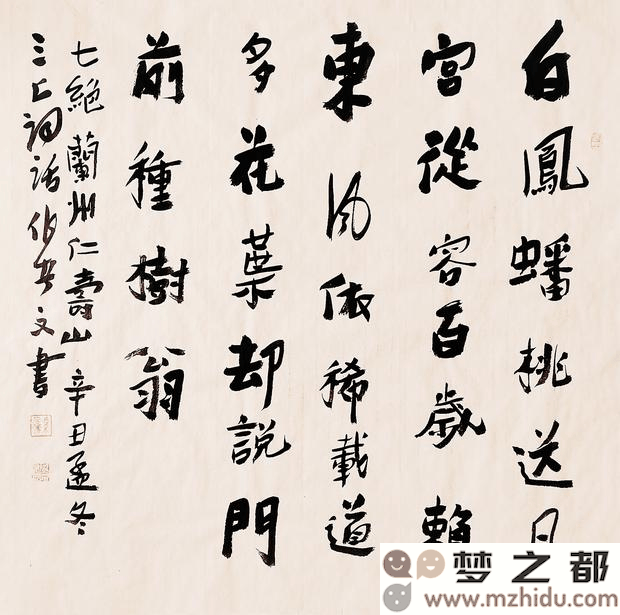 白鳳蟠桃送月
宮從容百歲賴
東风依稀載道
多花葉却說門
前種樹翁
七絕蘭州仁壽山 辛丑孟冬
三上詞話文書
梦之都
www.mzhidu.com